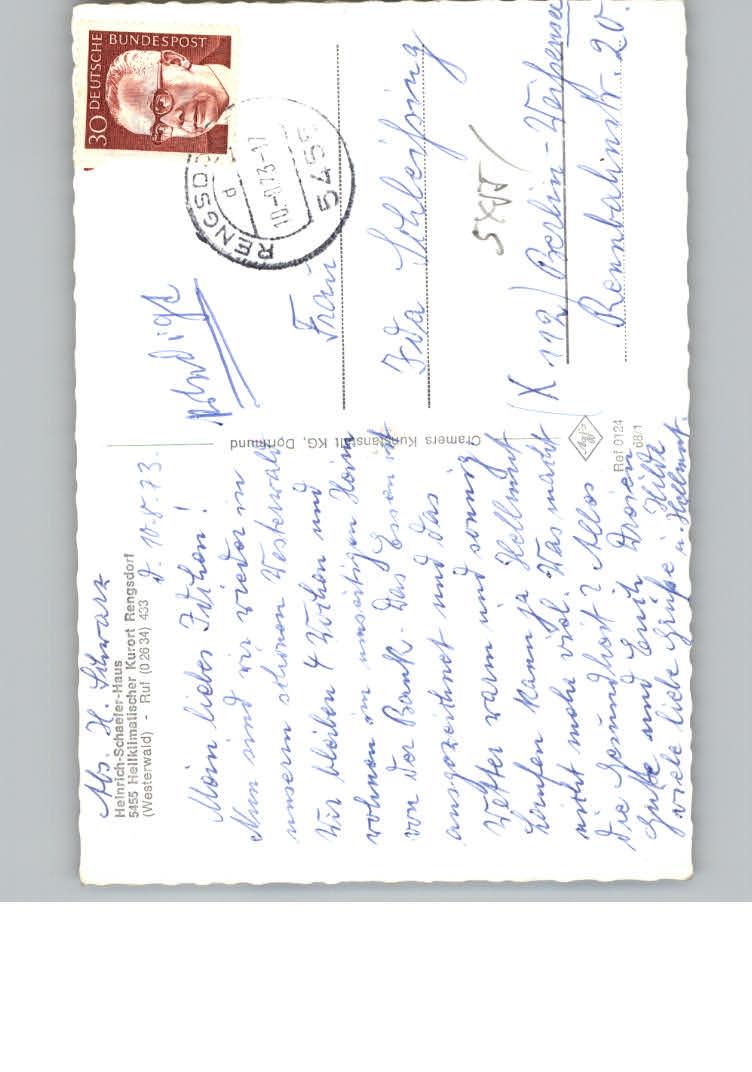 Abs. H. Schwarz
Heinrich-Schaefer-Haus
5455 Heilklimatischer Kurort Rengsdorf
(Westerwald) - Ruf (0 26 34) 433
D. 10.8.73.
Mein liebes Idchen!
Nun sind wir wieder in
unserm schönen Westerwald
Wir bleiben 4 Wochen und
wohnen im umseitigen Heim
von der Bank. Das Essen ist
ausgezeichnet und das
Wetter warm und sonnig
laufen kann ja Hellmut
nicht mehr viel. Was macht
die Gesundheit? Alles
Gute und Euch Dreien
viele liebe Grüße Hilde
u. Hellmut.
Cramers Kunstanstalt KG, Dortmund
Ref 0124
68/1
30 DEUTSCHE BUNDESPOST
RENGSDO
d
10.-8.73-17
5455
Frau
Ida Schleißing
X 112 Berlin-Weißensee
Rennbahnstr. 20.